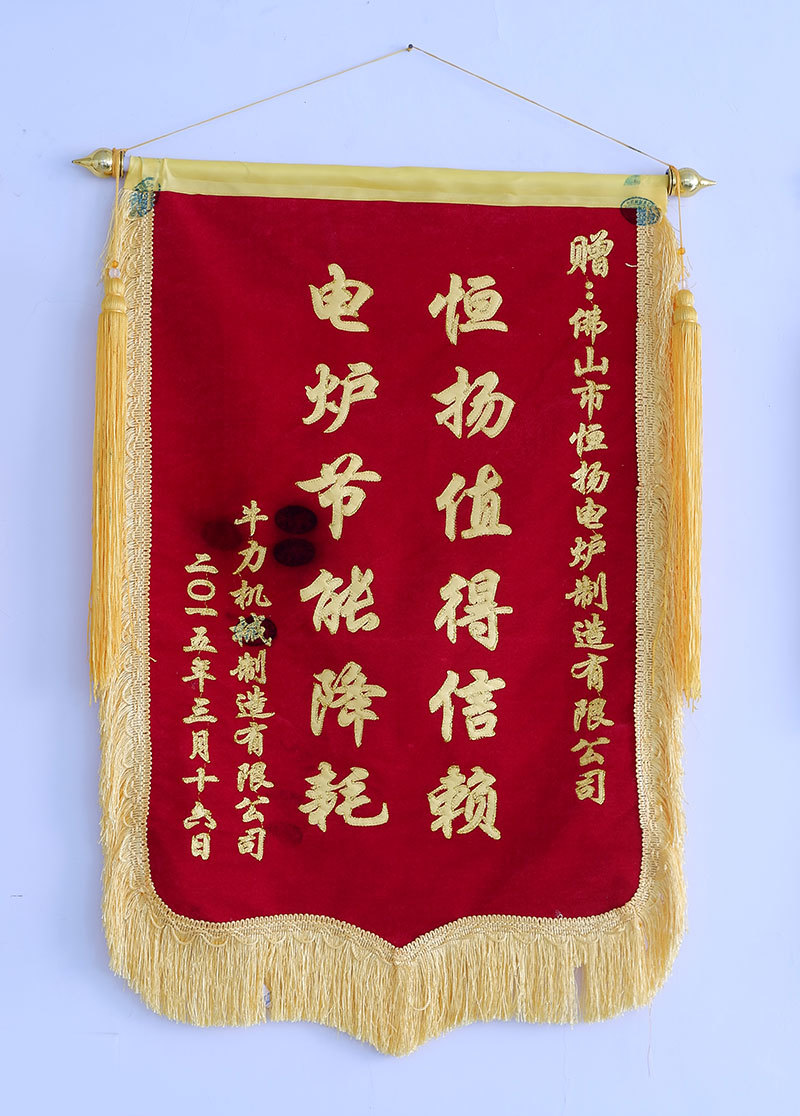 赠：佛山市恒扬电炉制造有限公司
恒扬值得信赖
电炉节能降耗
斗力机械制造有限公司
二〇一五年三月十六日